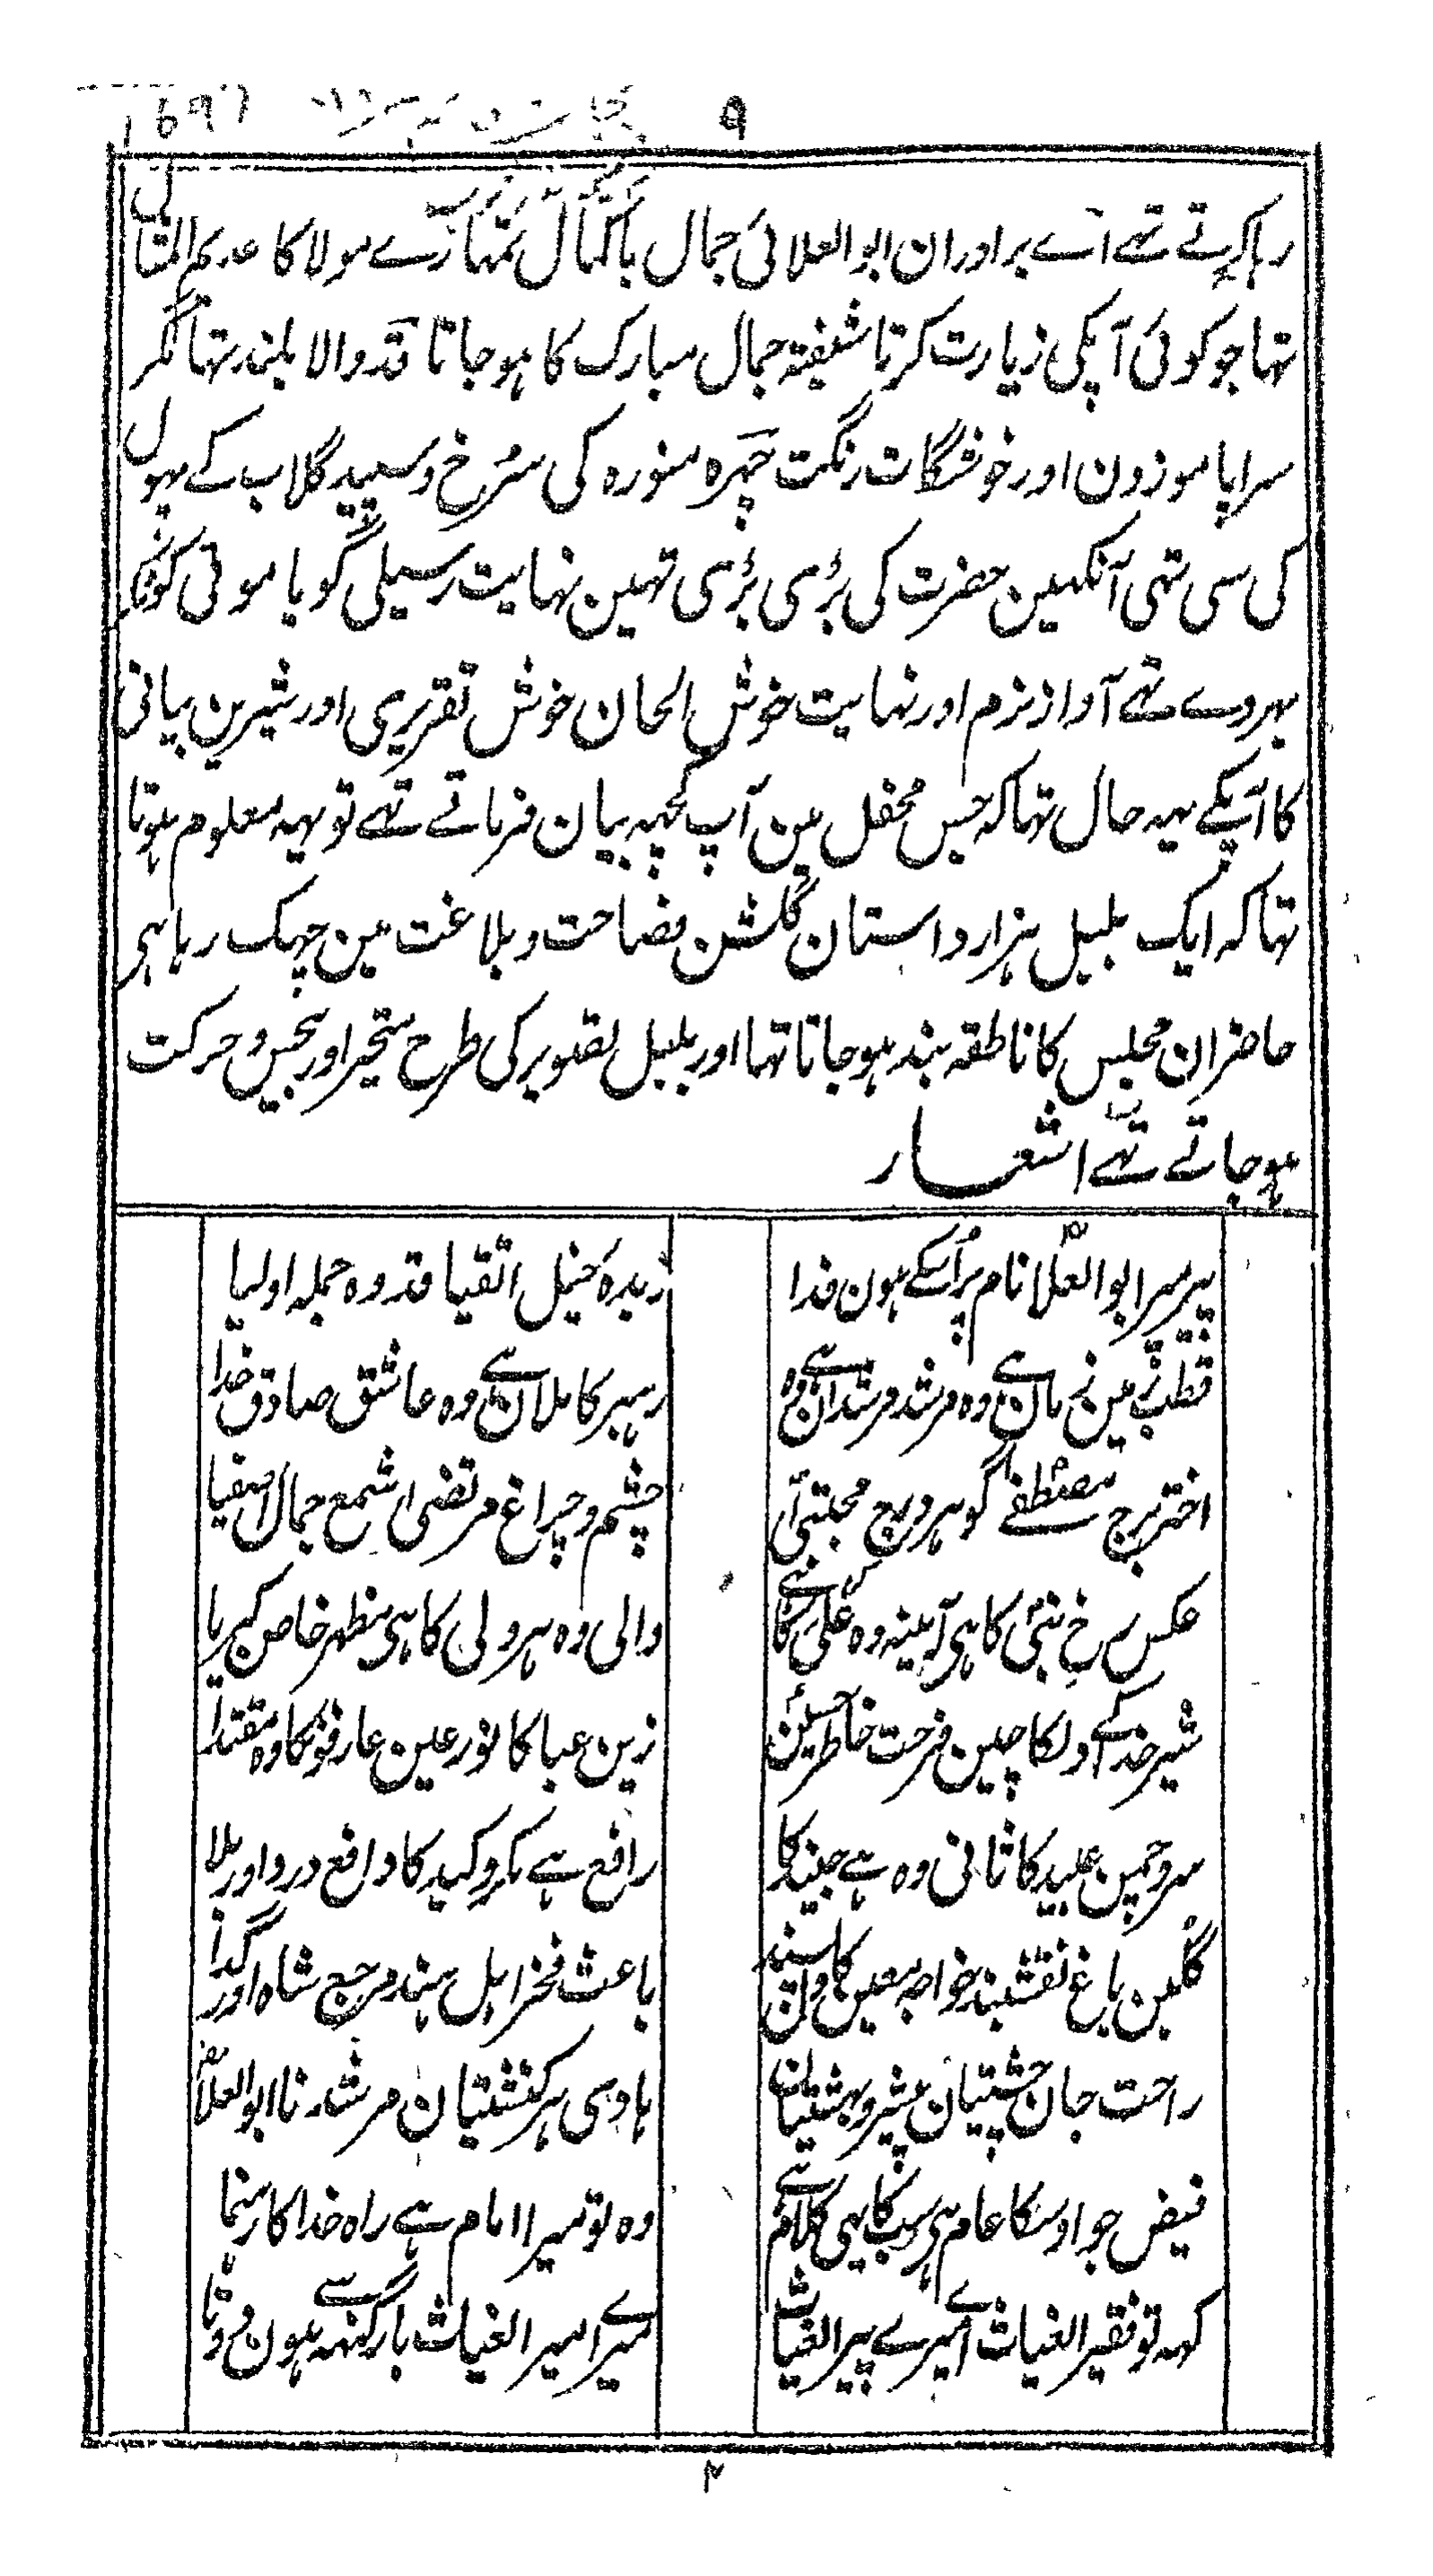 ۹
رہا کرتے تہے اے برادران ابوالعلائی جمال باکمال تمہارے مولا کا عدیم المثال
تہا جو کوئی آپکی زیارت کرتا شیفتہ جمال مبارک کا ہو جاتا قد والا بلند تہا مگر
سراپا موزون اور خوشگات رنگت چہرہ منورہ کی سُرخ و سپید گلاب کے پہول
کی سی تہی آنکہین حضرت کی بڑی بڑی تہین نہایت رسیلی گویا موتی کوٹکر
بہر دے تہے آواز نرم اور نہایت خوش الحان خوش تقریری اور شیرین بیانی
کا آپکے یہہ حال تہا کہ جس محفل مین آپ کچہہ بیان فرماتے تہے تو یہہ معلوم ہوتا
تہا کہ ایک بلبل ہزار داستان گلشن فصاحت و بلاغت مین چہک رہا ہی
حاضران مجلس کا ناطقہ بند ہو جاتا تہا اور بلبل تصویر کی طرح متحیر اور بیحس و حرکت
ہو جاتے تہے اشعار
پیر میرا ابوالعلا نام پر اُسکے ہون فدا زبدہ خیل اتقیا قدوہ جملہ اولیا
قطب زمین زمان ہے وہ مرشد مرشدان ہے وہ رہبر کاملان ہے وہ عاشق صادق خدا
اختر برج مصطفے گوہر درج مجتبی چشم و چراغ مرتضی شمع جمال اصفیا
عکس رخ نبی کا ہی آئینہ وہ علی کا ہے والی وہ ہر ولی کا ہی مظہر خاص کبریا
شیر خدا کے دلکا چین فرحت خاطر حسین زین عبا کا نور عین عارفونکا وہ مقتدا
سرو چمن عبید کا ثانی وہ ہے جنید کا رافع ہے مکر و کید کا دافع درد اور بلا
گلبن باغ نقشبند خواجہ معین کا باعث فخر اہل ہند مرجع شاہ اور گدا
راحت جان چشتیان بہشتیان ہادی ہر کنشتیان مرشدنا ابوالعلا
فیض جو اوسکا عام ہی سب کا یہی کلام ہے وہ تو میرا امام ہے راہ خدا کا رہنما
کہہ تو فقیر الغیاث اے میرے پیر الغیاث میرے امیر الغیاث بار گنہہ سے ہون دوتا
۲